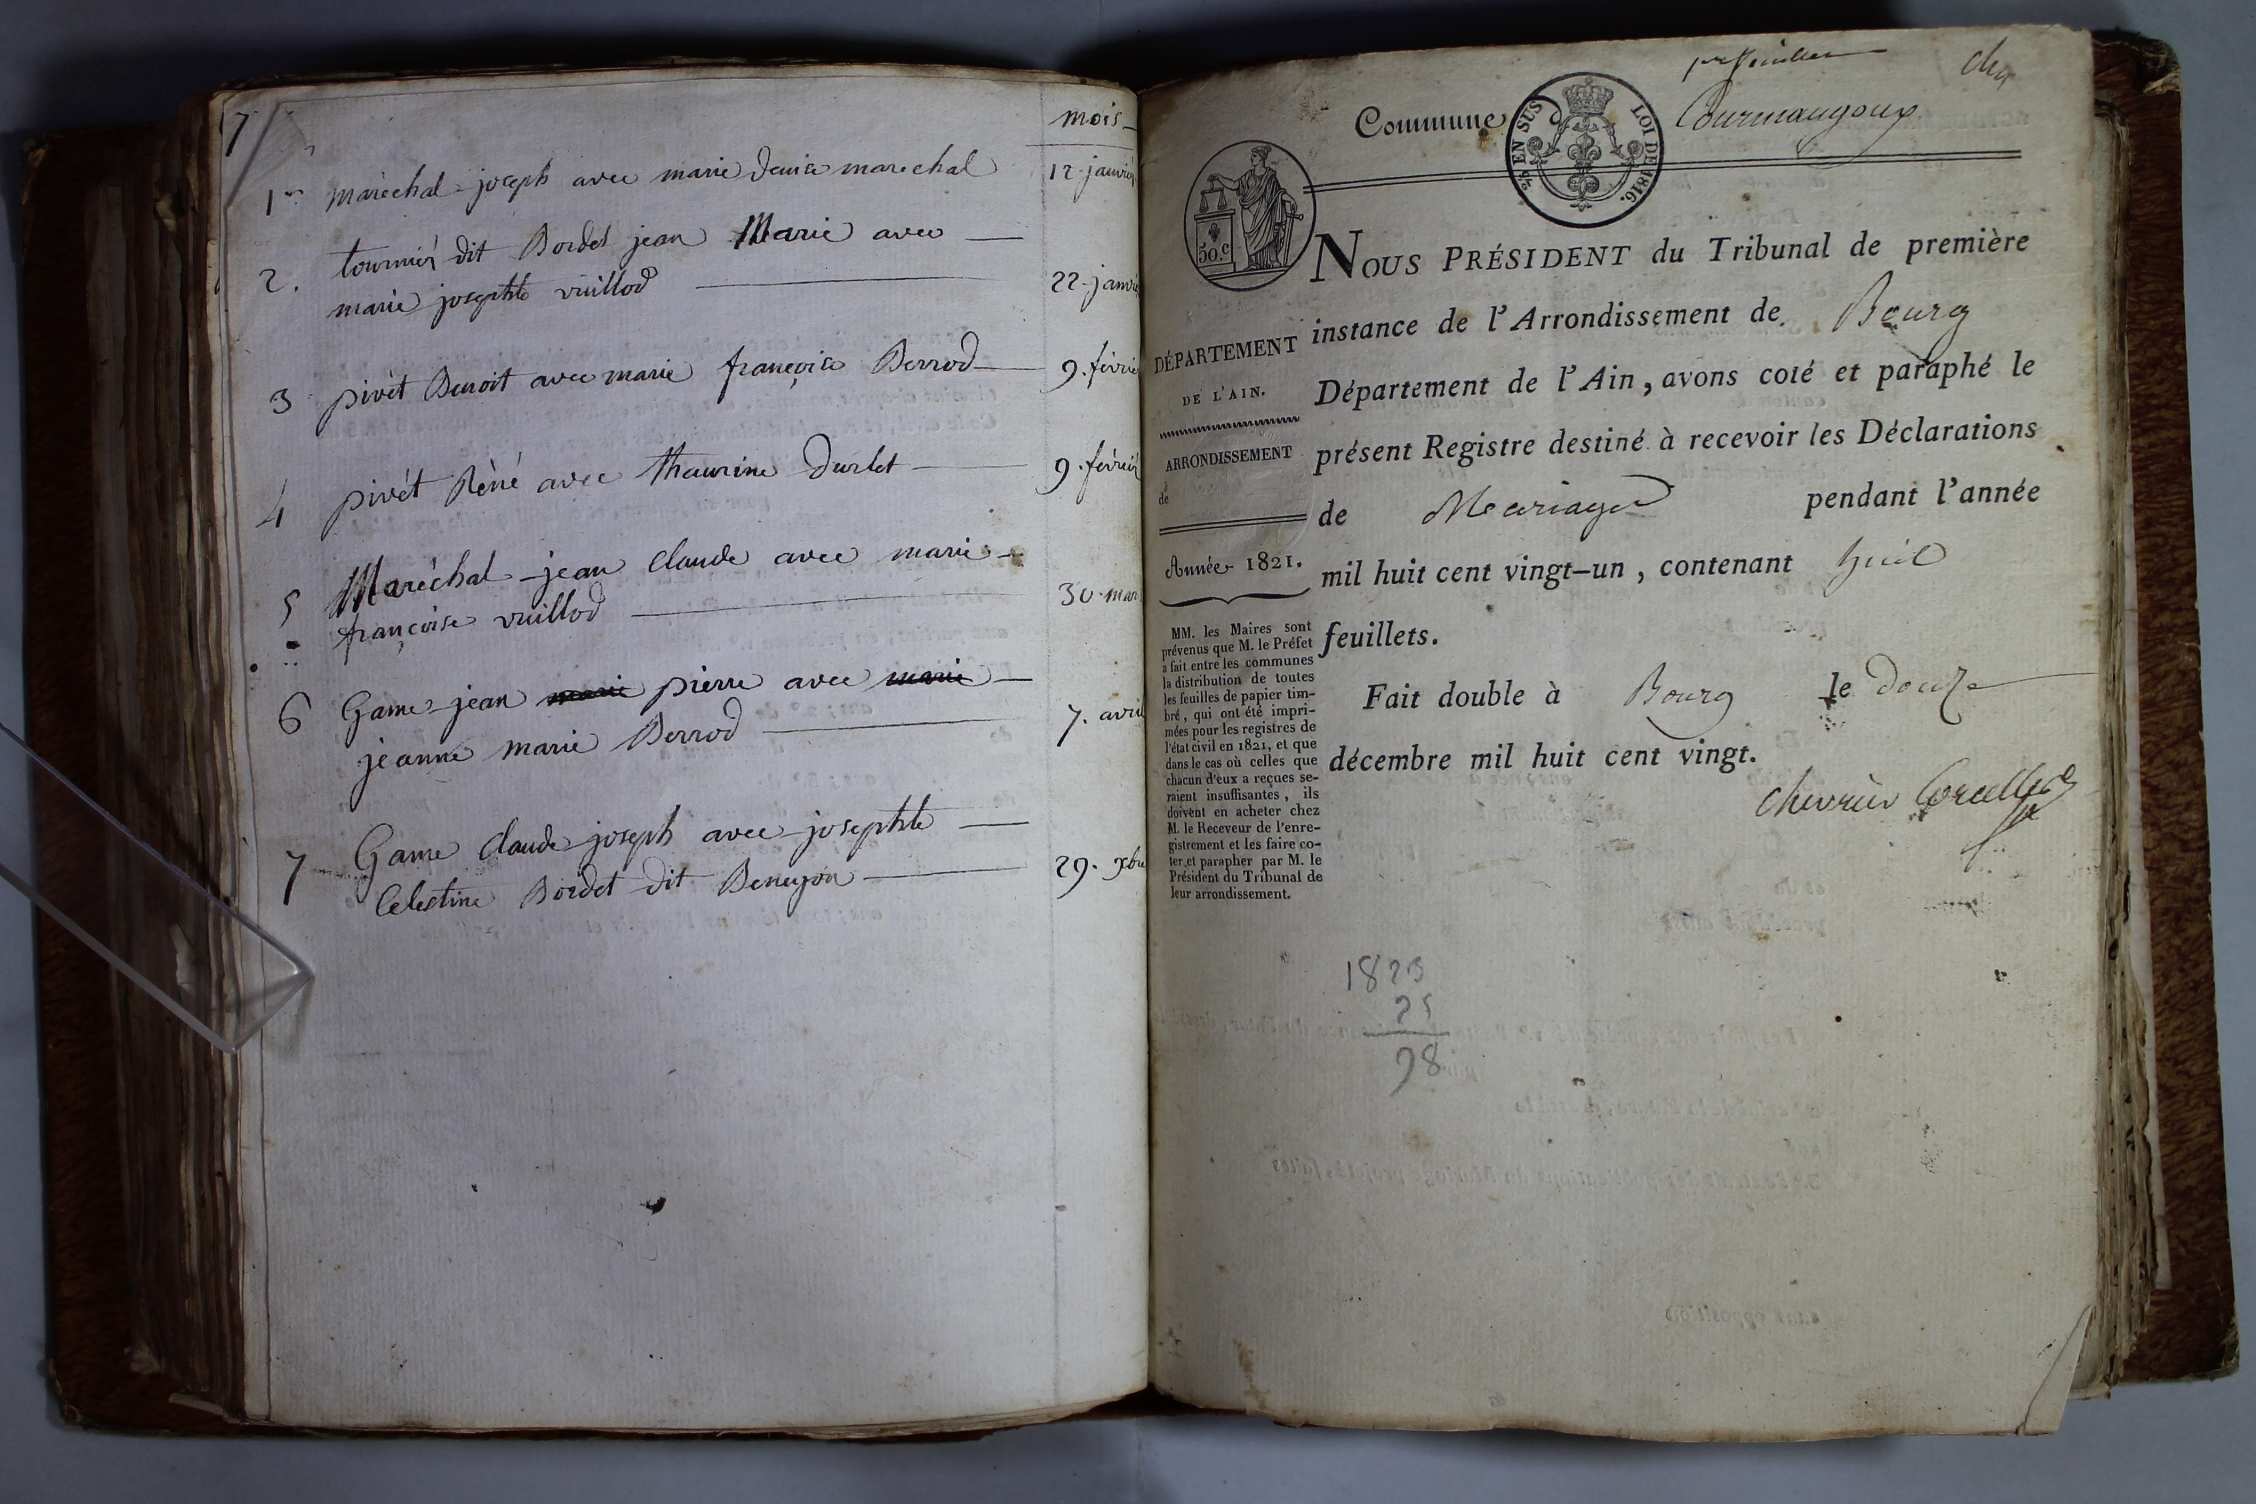 7
mois
1er maréchal joseph avec marie denise marechal 12. janvier
2. tournier dit Bordet jean Marie avec
marie josephte vuillod 22. janvie
3 pivèt Benoit avec marie françoise Berrod 9. févrie
4 pivét Réné avec thaurine durlet 9. févrie
5 Maréchal jean Claude avec marie
françoise vuillod 30. mar
6 Game jean marie pierre avec marie
jeanne marie Berrod 7. avril
7 Game Claude joseph avec josephte
Celestine Bordet dit Beneyon 29. xbre
1er feuillet
Commune Courmangoux
EN SUS LOI DE 1816.
50.c
NOUS PRÉSIDENT du Tribunal de première
instance de l'Arrondissement de Bourg
Département de l'Ain, avons coté et paraphé le
présent Registre destiné à recevoir les Déclarations
de Mariages pendant l'année
mil huit cent vingt-un, contenant huit
feuillets.
Fait double à Bourg le douze
décembre mil huit cent vingt.
chevrier Corcelles
DÉPARTEMENT
DE L'AIN.
ARRONDISSEMENT
de
Année 1821.
MM. les Maires sont
prévenus que M. le Préfet
a fait entre les communes
la distribution de toutes
les feuilles de papier tim-
bré, qui ont été impri-
mées pour les registres de
l'état civil en 1821, et que
dans le cas où celles que
chacun d'eux a reçues se-
raient insuffisantes, ils
doivent en acheter chez
M. le Receveur de l'enre-
gistrement et les faire co-
ter et parapher par M. le
Président du Tribunal de
leur arrondissement.
1823
25
98